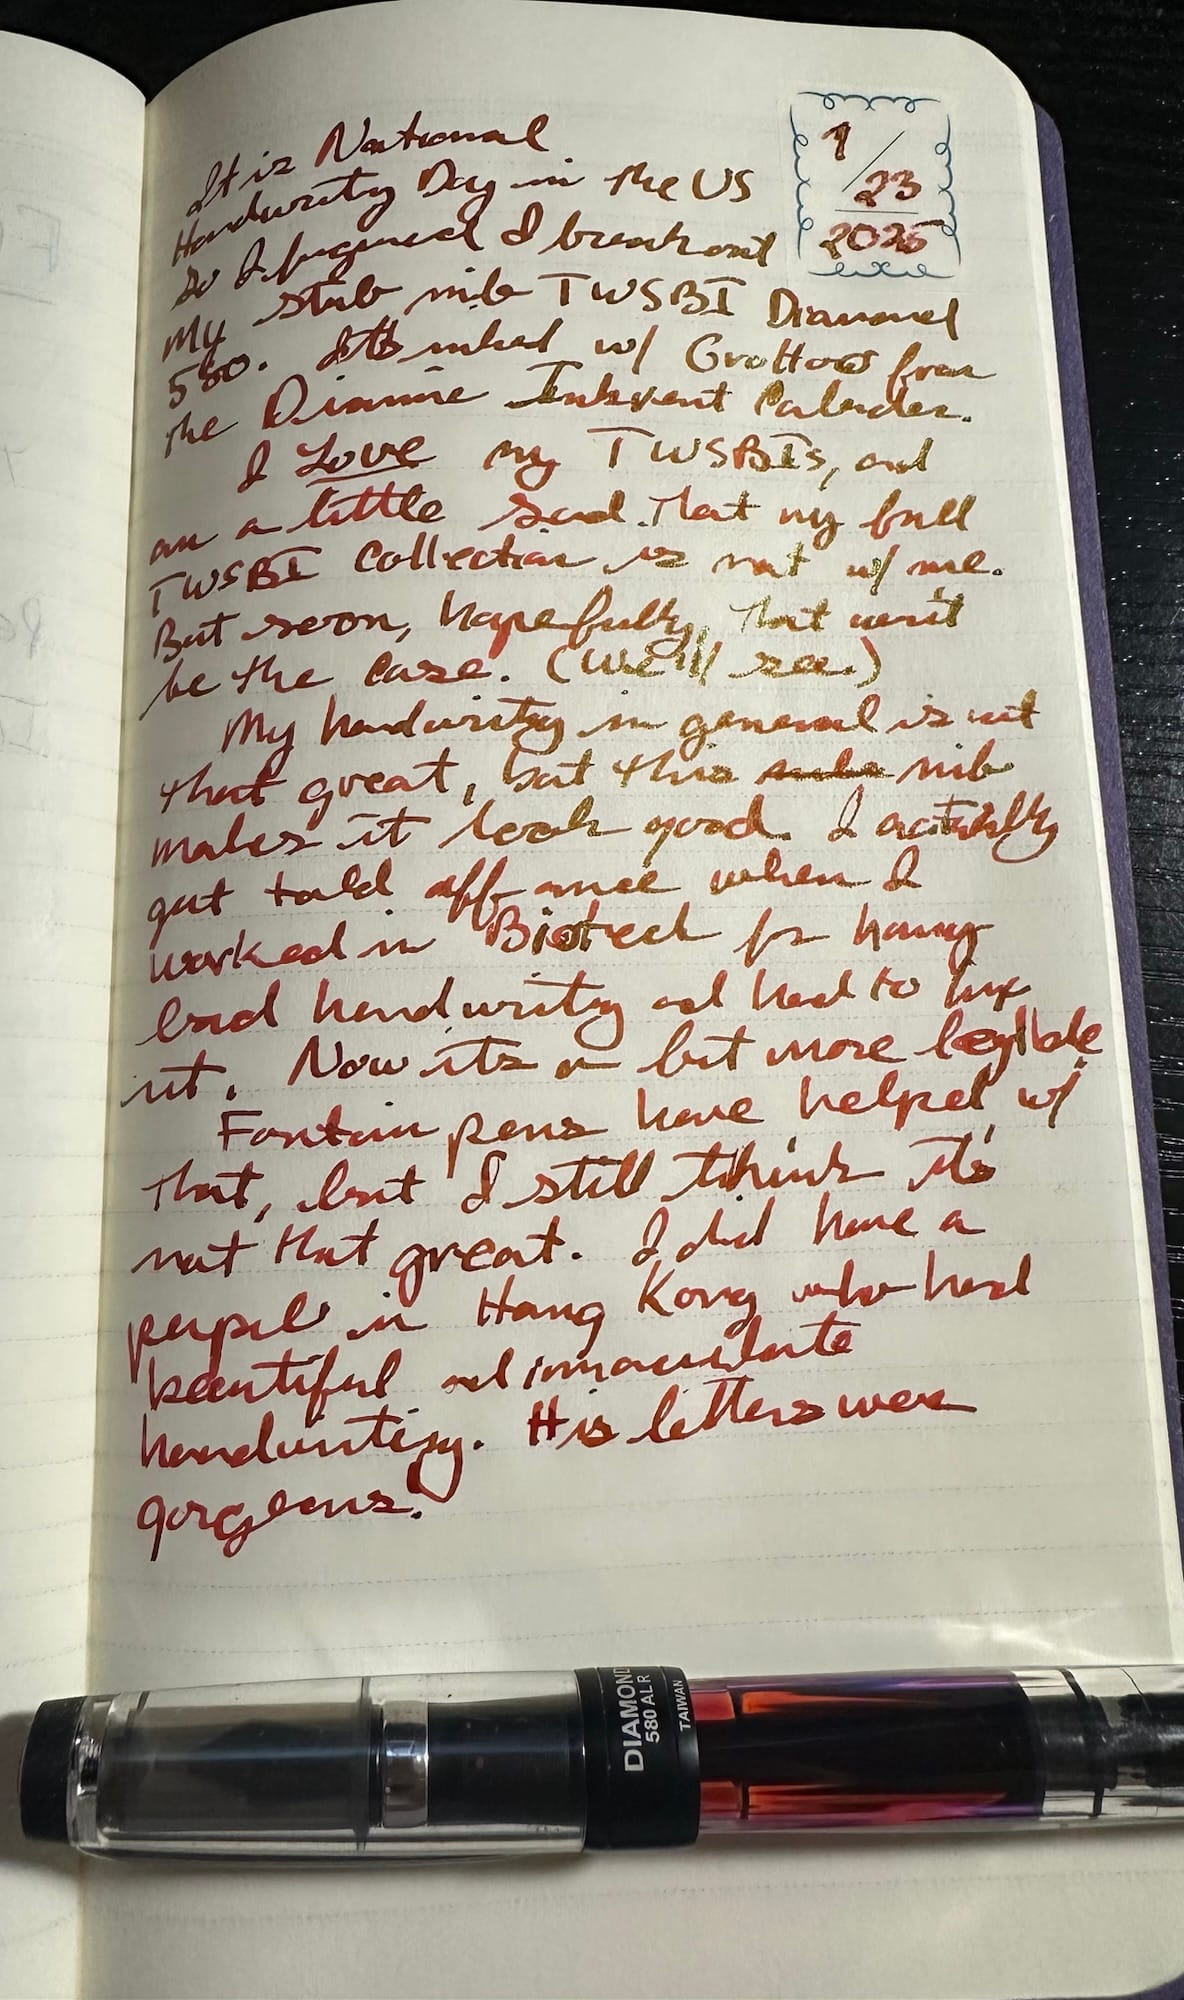 1/23
2025
It is National
Handwriting Day in the US
So I figured I break out
my stub nib TWSBI Diamond
580. It's inked w/ Grottos from
the Diamine Inkvent Calender.
I Love my TWSBIs, and
am a little sad that my full
TWSBI Collection is not w/ me.
But soon, hopefully, that won't
be the case. (We'll see.)
My handwriting in general is not
that great, but this nib
makes it look good. I actually
got told off once when I
worked in Biotech for having
bad handwriting and had to fix
it. Now its a bit more legible
Fontain pens have helped w/
that, but I still think it's
not that great. I did have a
penpal in Hong Kong who had
beautiful and immaculate
handwriting. His letters were
gorgeous.
DIAMOND
580 ALR
TAIWAN